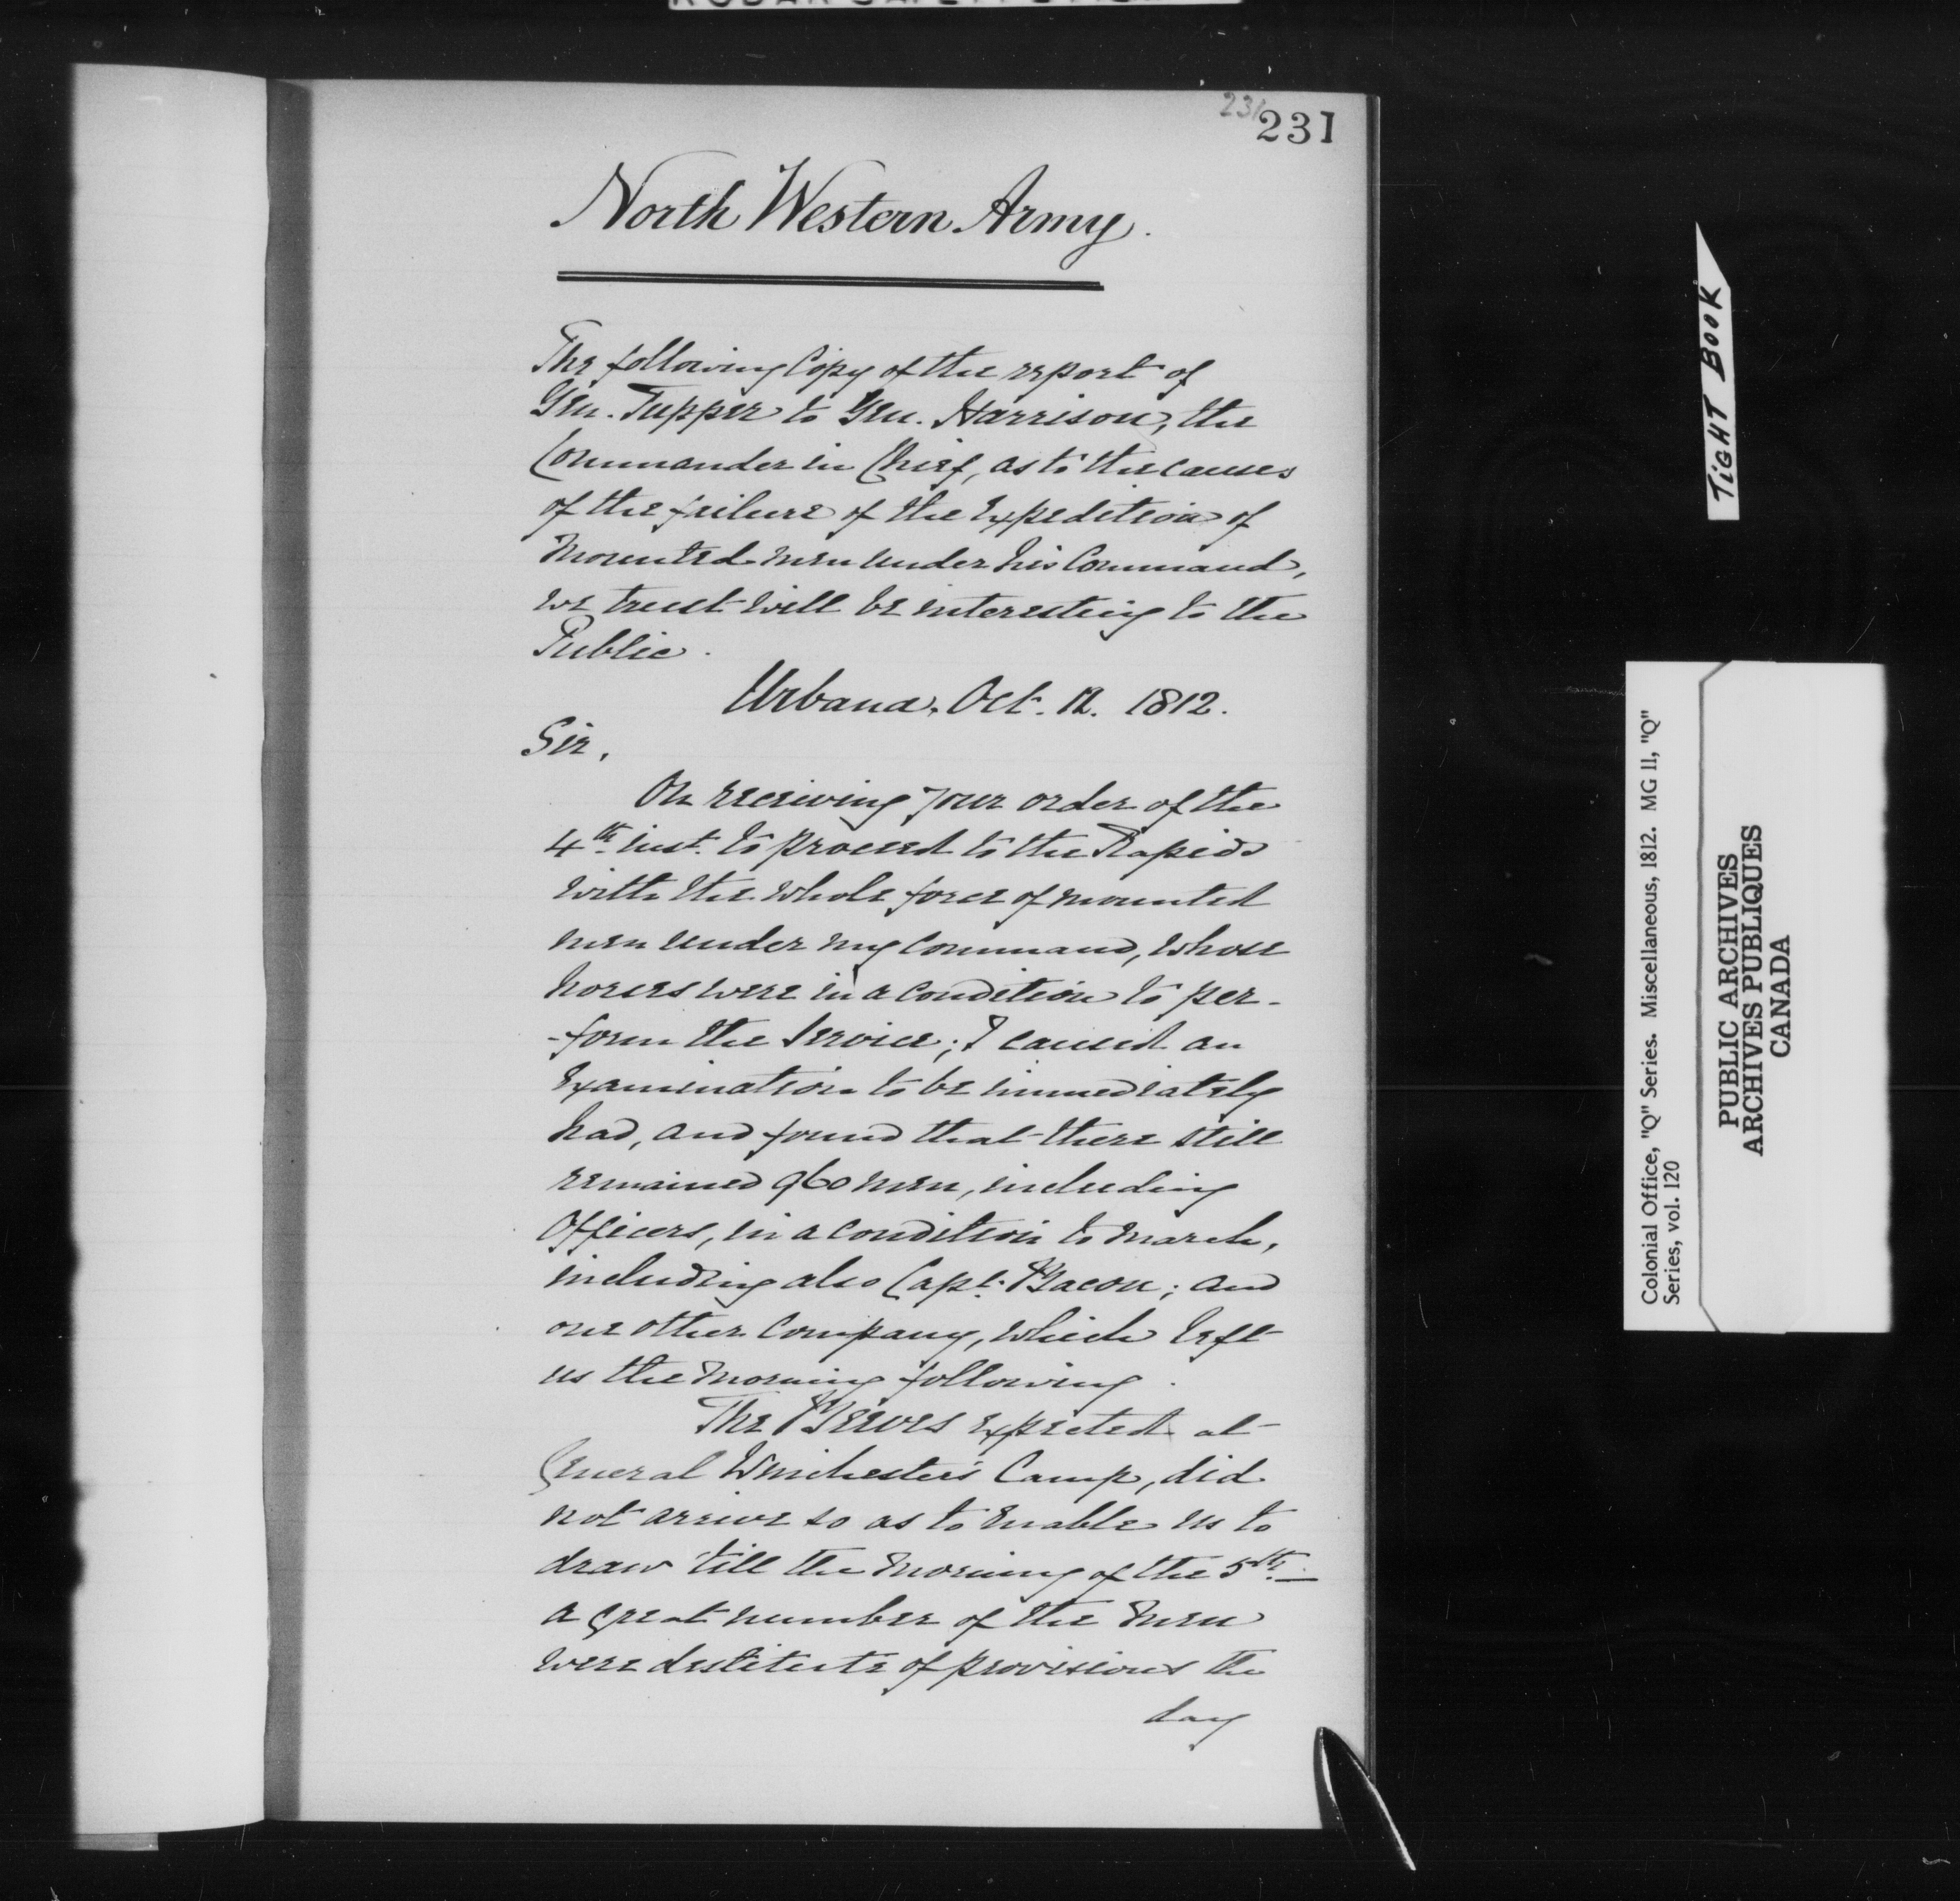 231
231
North Western Army.
The following Copy of the report of
Gen. Tupper to Gen. Harrison, the
Commander in Chief, as to the causes
of the failure of the Expedition of
Mounted men under his Command,
we trust will be interesting to the
Public.
Urbana, Oct. 12. 1812.
Sir,
On receiving your order of the
4th inst. to proceed to the Rapids
with the whole force of mounted
men under my command, whose
horses were in a condition to per-
-form the Service; I caused an
Examination to be immediately
had, and found that there still
remained 960 men, including
Officers, in a condition to march,
including also Capt. Bacon; and
one other Company, which left
us the morning following.
The Beeves expected at
General Winchester's Camp, did
not arrive so as to enable us to
draw till the morning of the 5th. —
a great number of the men
were destitute of provisions the
day
TIGHT BOOK
Colonial Office, "Q" Series. Miscellaneous, 1812. MG 11, "Q"
Series, vol. 120
PUBLIC ARCHIVES
ARCHIVES PUBLIQUES
CANADA